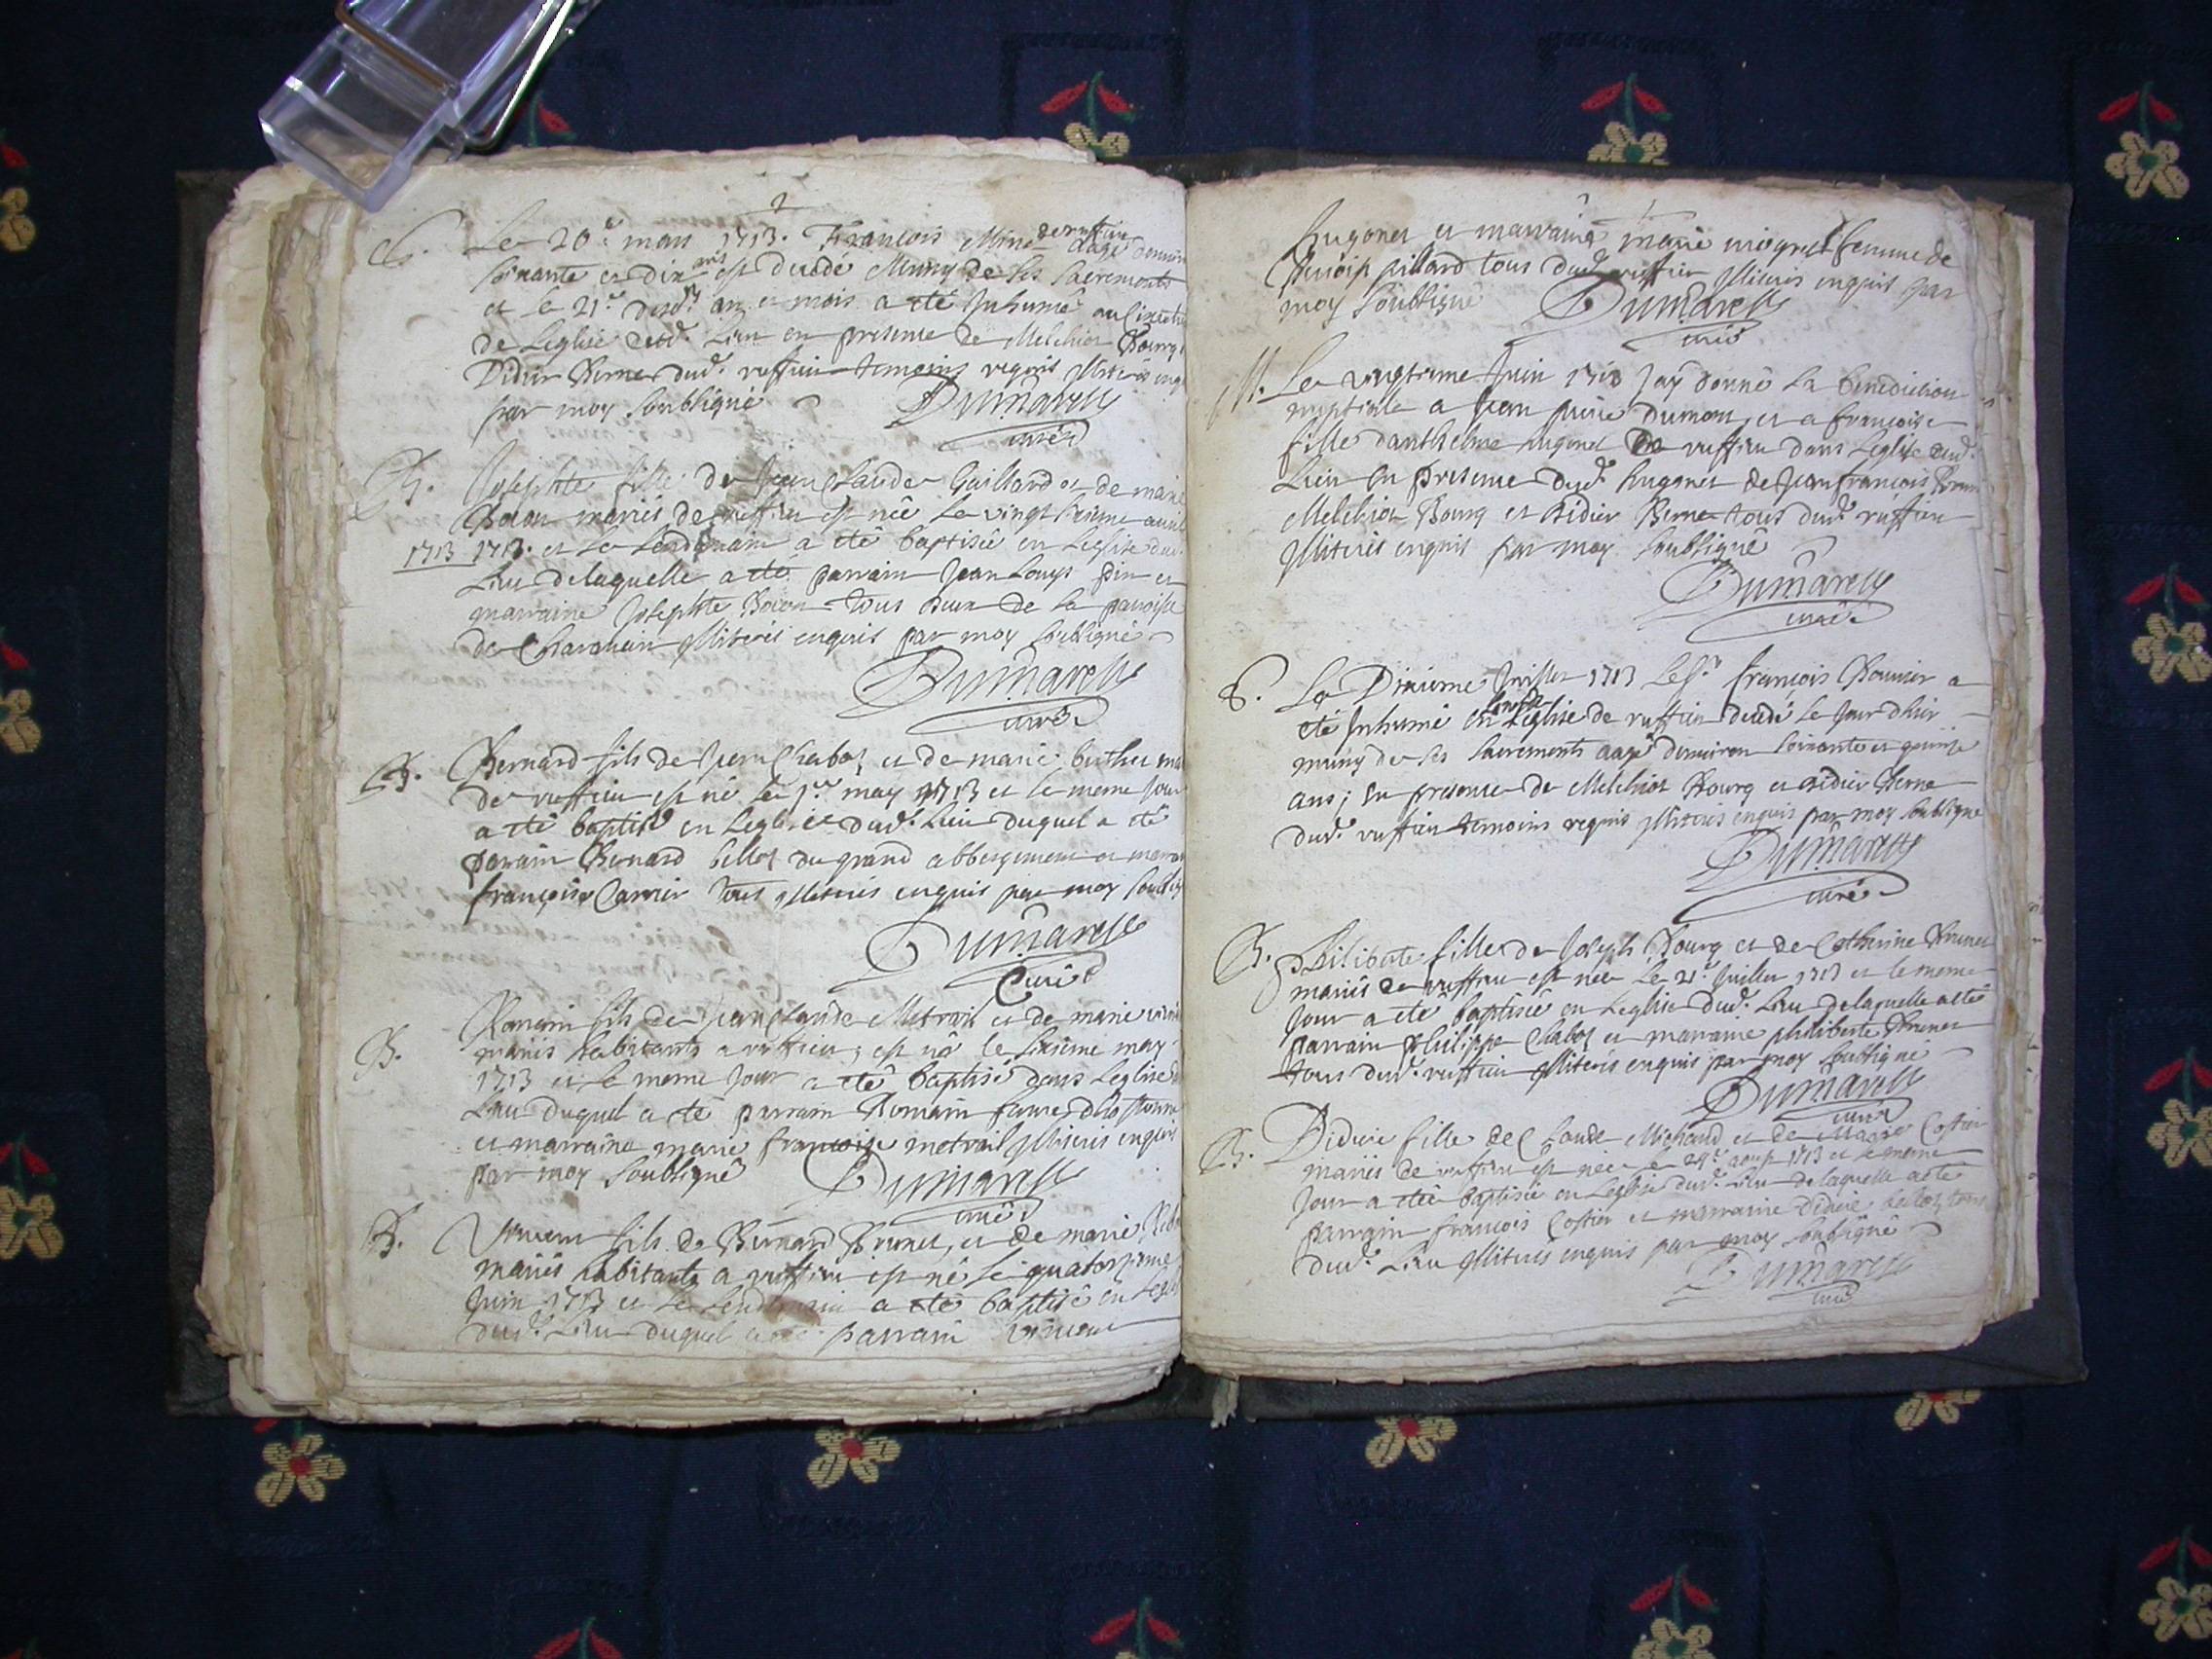 S. Le 20e mars 1713. François Minet de ruffieu aagé denviron
soixante et dix ans est decedé Muny de ses sacrements
et le 21e dud. an et mois a eté Inhumé au Cimetie
de Leglise dud. Lieu en presence de Melchior Bourg
Didier Berne dud. ruffieu temoins requis illiterés enq
par moy soubsigné
Dumarest
curé
B. Josephte fille de Jean Claude Gaillard et de marie
mariés de ruffieu est née Le vingt avril
1713 1713. et Le Lendemain a eté baptisée en Leglise dud.
Lieu delaquelle a eté parrain Jean Louys pin et
marraine Josephte tous deux de la paroisse
de illiterés enquis par moy soubsigné
Dumarest
curé
B. Bernard fils de Jean Chaboz et de marie berthet ma
de ruffieu est né Le 1er may 1713 et le meme Jour
a eté baptisé en Leglise dud. Lieu duquel a eté
parain Bernard belloz du grand abbergement et marra
françoise Carrier tous illiterés enquis par moy soubsig
Dumarest
Curé
B. Romain fils de Jean Claude Metrail et de marie
mariés habitants a ruffieu; est né le sixieme may
1713 et le meme Jour a eté baptisé dans Leglise d
Lieu duquel a eté parrain Romain
et marraine marie françoise metrail illiterés enquis
par moy soubsigné
Dumarest
curé
B. Vincent fils de Bernard Brunet, et de marie
mariés habitants a ruffieu est né le quatorzieme
Juin 1713 et Le Lendemain a eté baptisé en Legl
dud. Lieu duquel a eté parrain vincent
hugonet et marraine marie femme de
pillard tous dud. ruffieu illiterés enquis par
moy soubsigné
Dumarest
curé
M. Le vingtieme Juin 1713 Jay donné La benediction
nuptiale a Jean pierre Dumont, et a françoise
fille danthelme hugonet de ruffieu dans Leglise dud.
Lieu en presence dud. hugonet de Jean françois
Melchior Bourg et Didier Berne tous dud. ruffieu
illiterés enquis par moy soubsigné
Dumarest
curé
S. Le Dixieme Juillet 1713 Le Sr. françois a
eté Inhumé en Leglise de ruffieu decedé Le Jour dhier
muny de ses sacrements aagé denviron soixante et quinze
ans; en presence de Melchior Bourg et Didier Berne
dud. ruffieu temoins requis illiterés enquis par moy soubsigné
Dumarest
curé
B. Philiberte fille de Joseph Bourg et de Catherine Brunet
mariés de ruffieu est née Le 21e Juillet 1713 et le meme
Jour a eté baptisée en Leglise dud. Lieu delaquelle a eté
parrain philippe Chaboz et marraine philiberte Brunet
tous dud. ruffieu illiterés enquis par moy soubsigné
Dumarest
curé
B. Didiere fille de Claude Michaud et de Marie Costier
mariés de ruffieu est née Le 29e aoust 1713 et le meme
Jour a eté baptisée en Leglise dud. Lieu delaquelle a eté
parrain françois Costier et marraine Didiere belloz tous
dud. Lieu illiterés enquis par moy soubsigné
Dumarest
curé